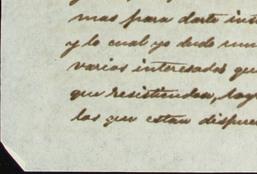 mas para darte inst
y lo cual yo dudo
varios interesados que
que resistiendose, 
los que estan dispue